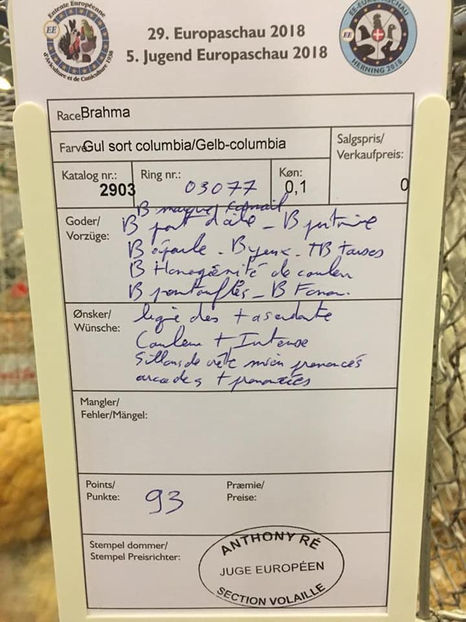 Entente Européenne
d'Aviculture et de Cuniculture 1938
EE
29. Europaschau 2018
5. Jugend Europaschau 2018
EE-EUROPASCHAU
EE
HERNING 2018
Race Brahma
Farve Gul sort columbia/Gelb-columbia
Salgspris/
Verkaufpreis:
0
Katalog nr.:
2903
Ring nr.:
03077
Køn:
0,1
Goder/
Vorzüge:
B marques camail
B port d'aile - B poitrine
B épaule - B yeux - TB tarses
B Homogénité de couleur
B
Ønsker/
Wünsche:
ligne dos + ascendante
Couleur + Intense
Sillons de tête mieux prononcés
arcades + prononcées
Mangler/
Fehler/Mängel:
Points/
Punkte:
93
Præmie/
Preise:
Stempel dommer/
Stempel Preisrichter:
ANTHONY RÉ
JUGE EUROPÉEN
SECTION VOLAILLE